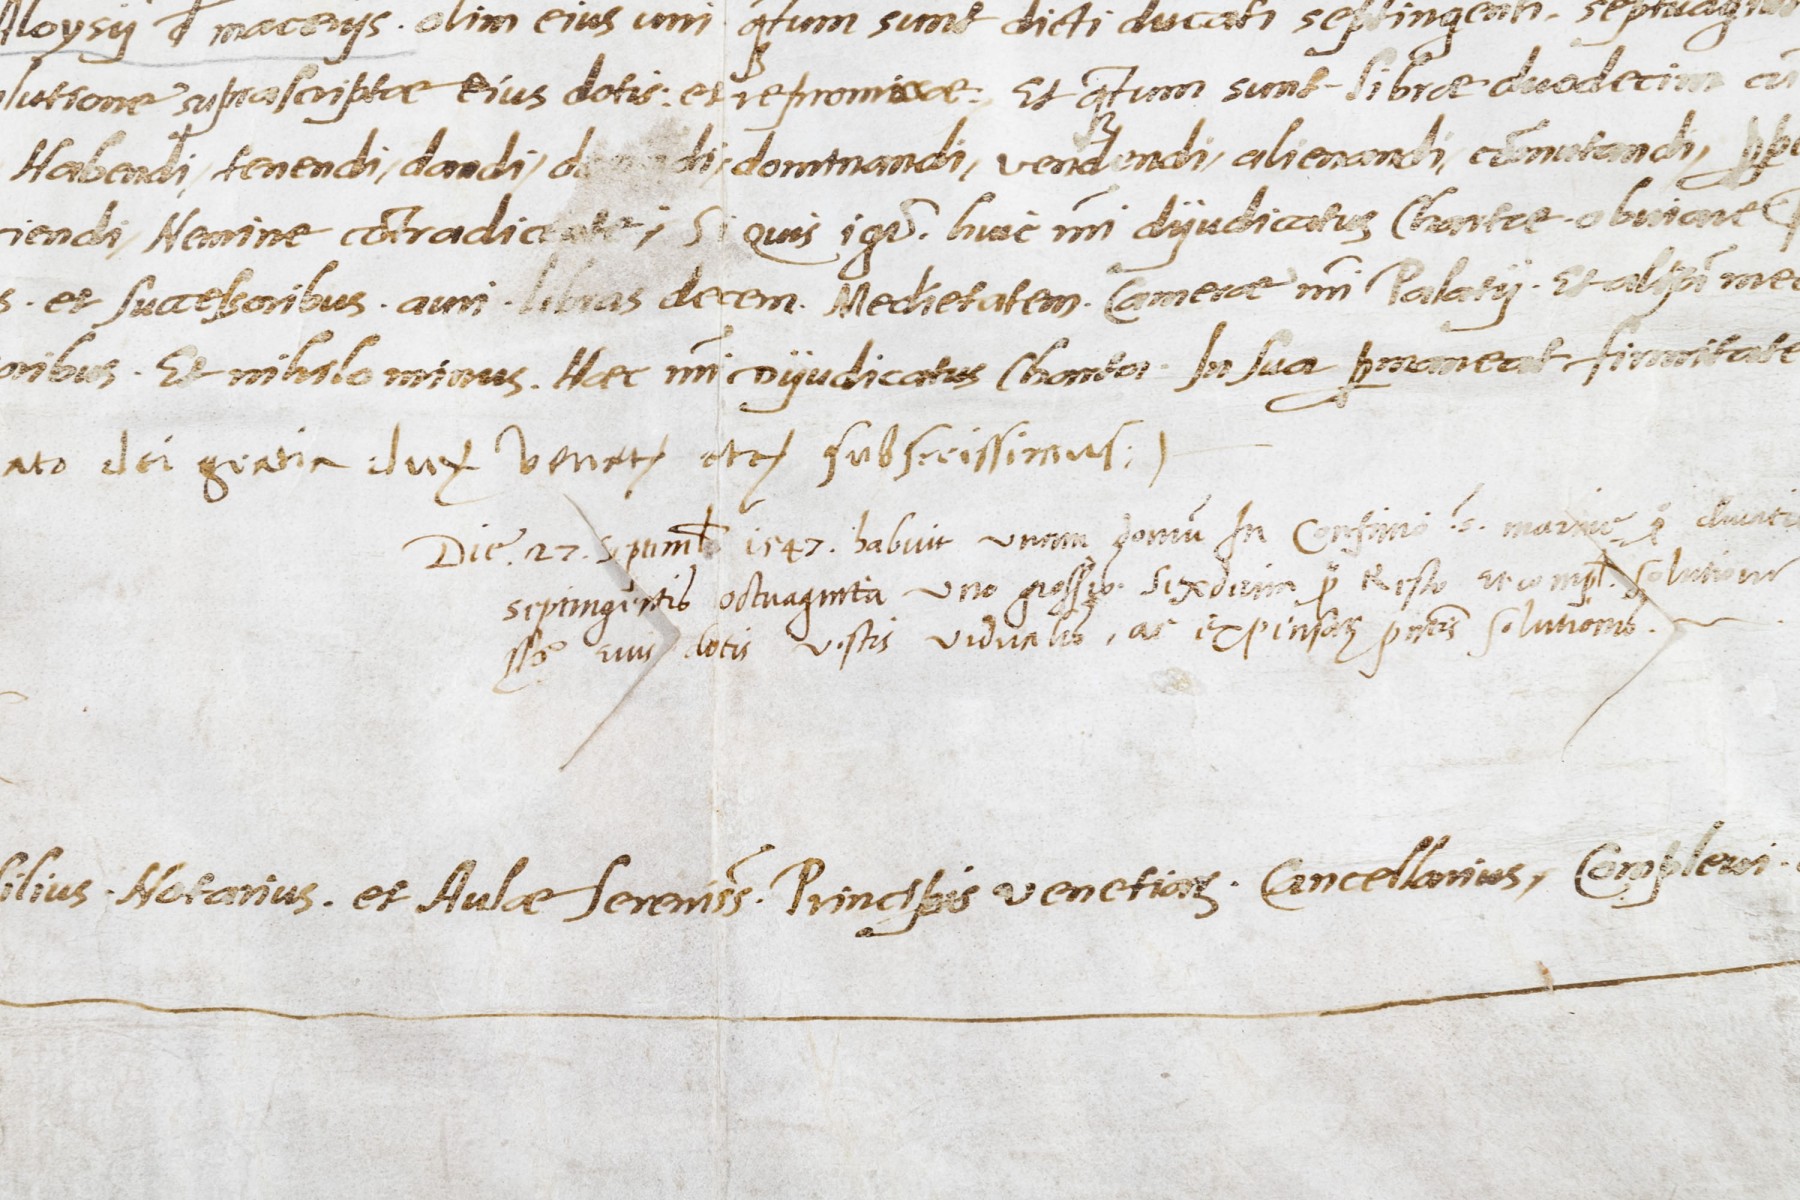 Aloysÿ đ macerÿs. olim eius viri q̃tum sunt dicti ducati septingenti. septuagin
lutione suprascriptae Eius dotis: et repromissae: Et q̃tum sunt librae duodecim cũ
Habendi, tenendi, dandi, donandi, dominandi, vendendi, alienandi, cõmutandi,
ciendi, Nemine cõtradicente; Si quis igr̃. huic nr̃i dÿudicatus Chartae obuiare
s. et successoribus. auri. libras decem. Medietatem. Camerae nr̃i Palatÿ. Et
oribus. Et nihilominus. Haec nr̃i Dÿudicatus Charta. In sua ꝑmaneat firmitate
ato dei gratia dux Venet etc subscrissimus;
Die. 27. Septimb 1547. habuit vnam domũ In Confinio .S. mariae ducatis
septingẽtis octuaginta vno grossis. Sexdecim ꝓ Resto et compl. solutione
eius dotis vestis vidualis, ac expensaꝝ pñtis solutionis.
silius. Notarius. et Aulae Sereniss̃. Principis Venetiaꝝ. Cancellarius, Compleui.